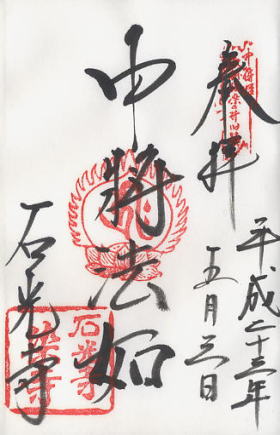 奉拝
平成二十三年
五月三日
中將法如
石光寺
石光寺
染寺